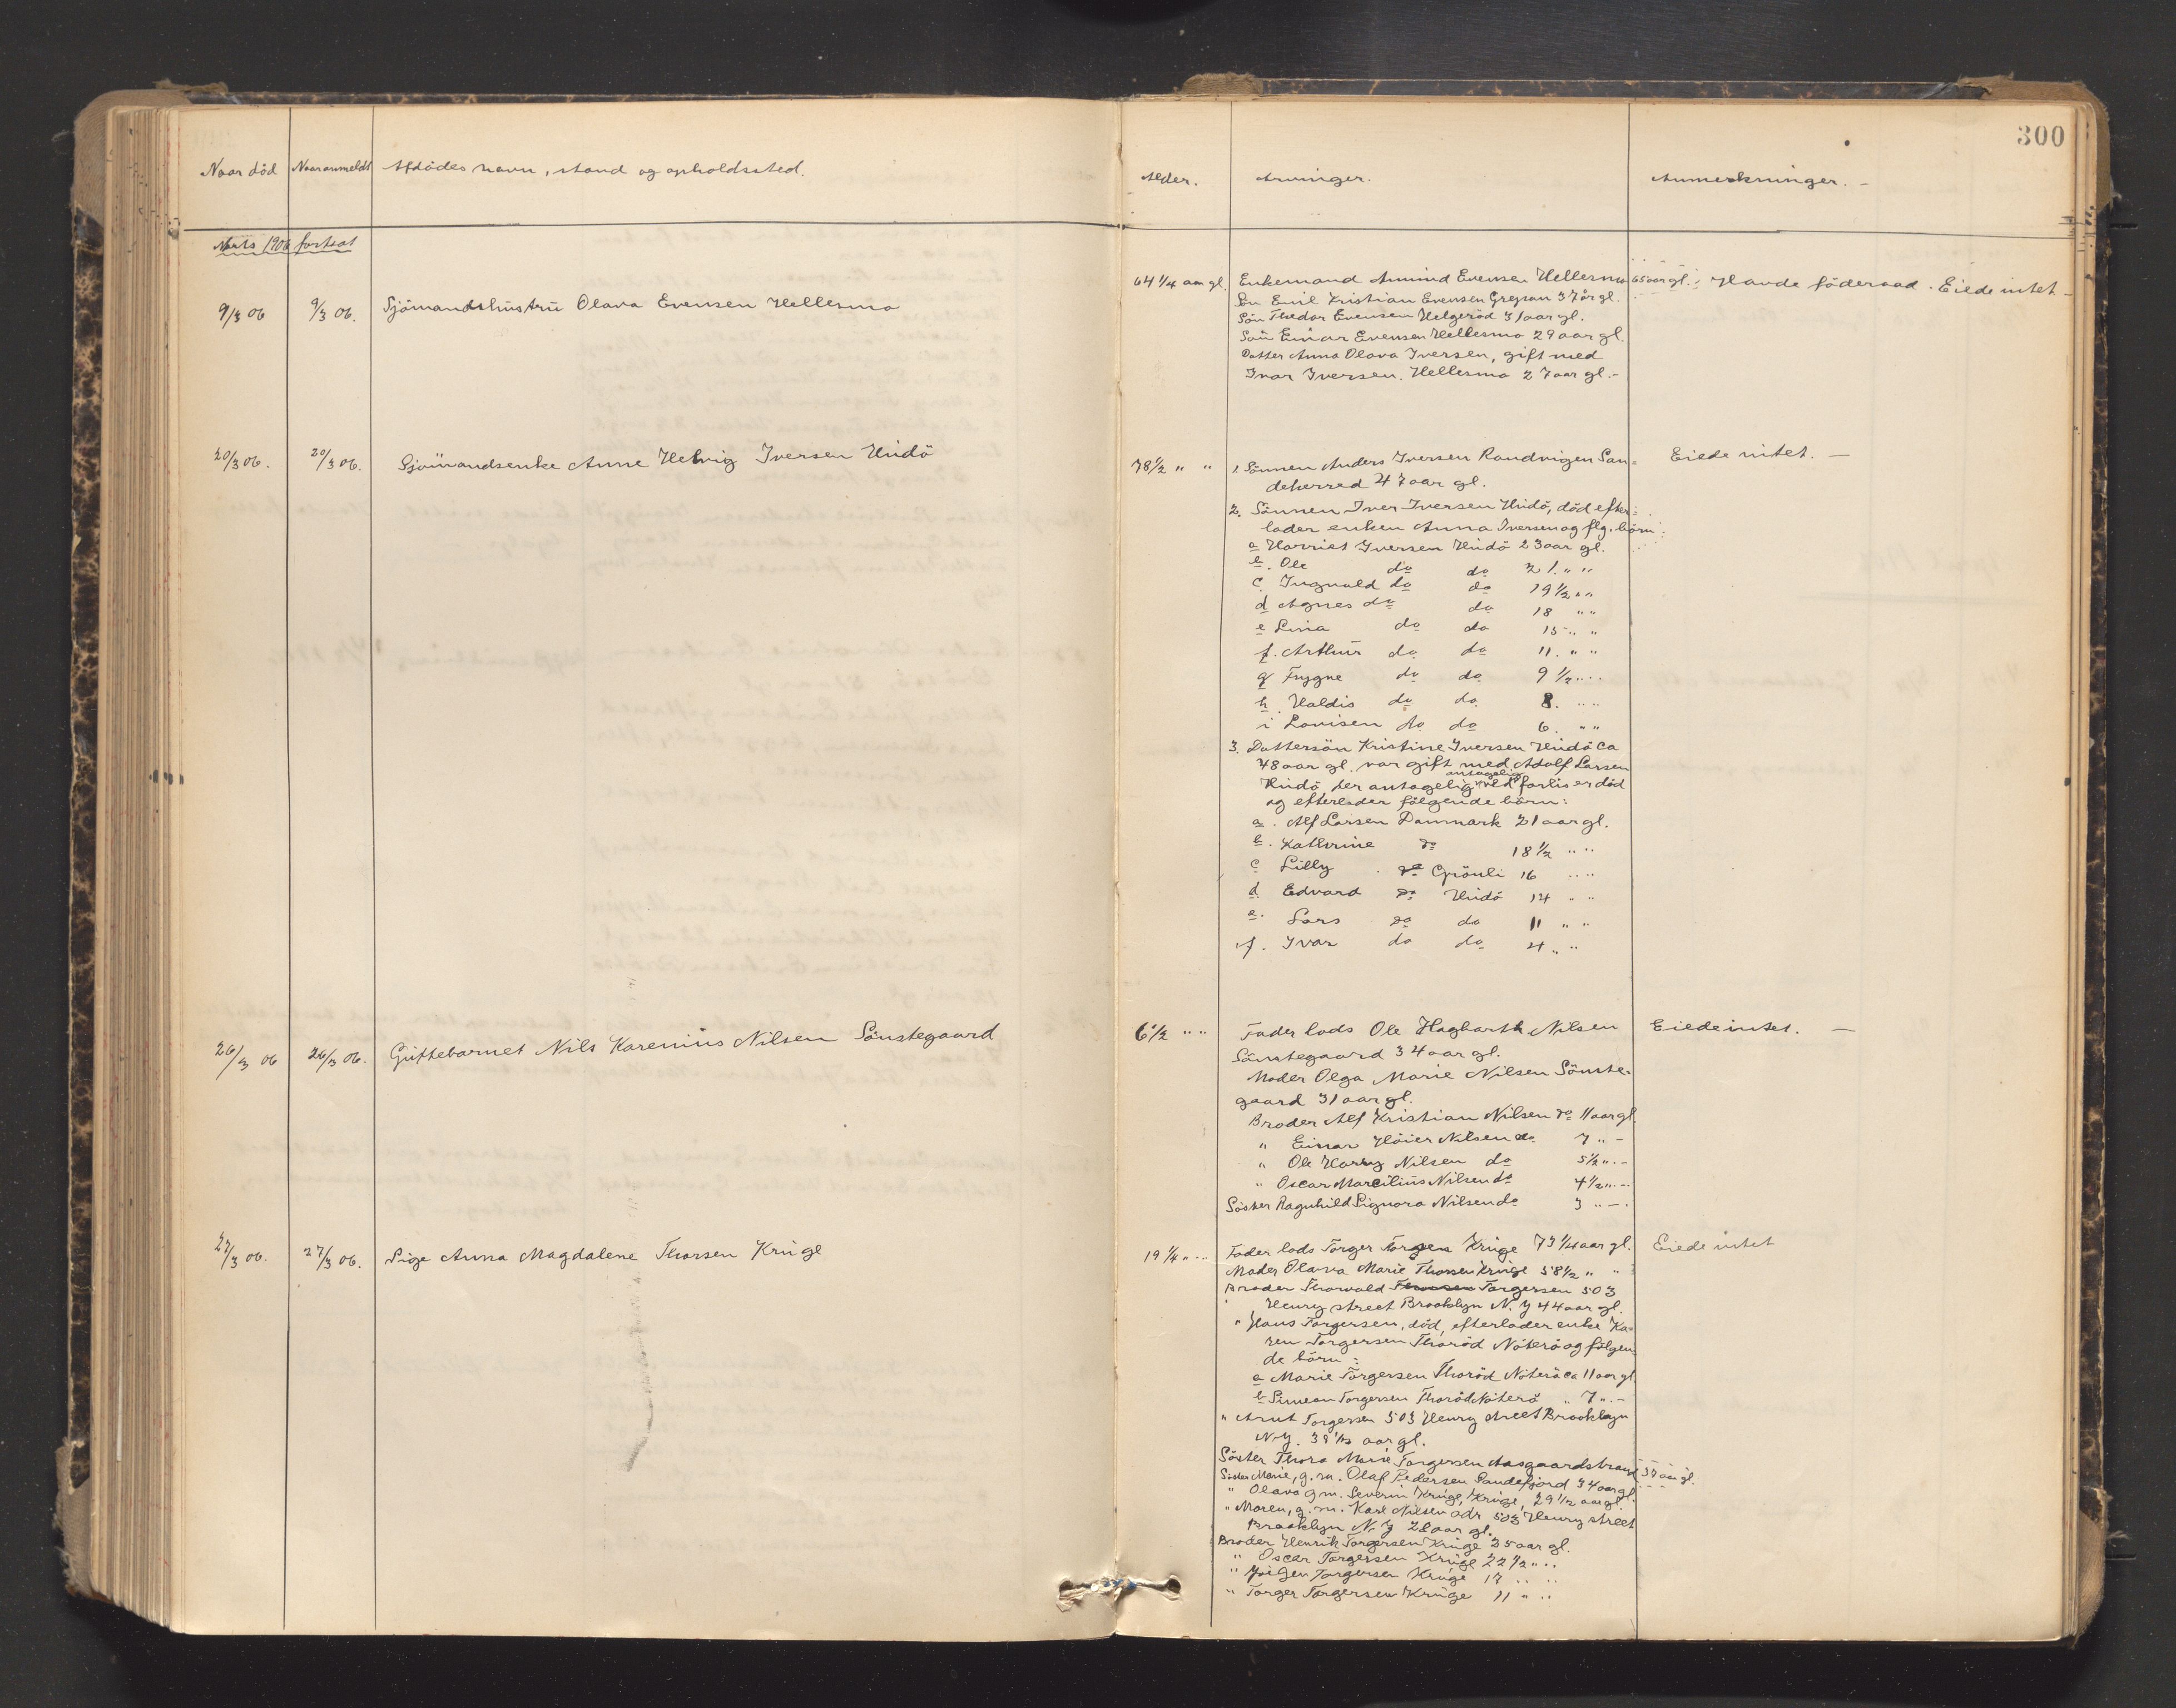 300
Naar död
Naar anmeldt
Afdödes navn, stand og opholdssted.
Alder.
Arvinger.
Anmerkninger. -
Marts 1906 fortsat
9/3 06
9/3 06.
Sjömandshustru Olava Evensen Hellesmo
64 1/4 aar gl.
Enkemand Amund Evensen Hellesmo 65 aar gl.
Sön Emil Kristian Evensen 37 år gl.
Sön Thedor Evensen Helgeröd 31 aar gl.
Sön Einar Evensen Hellesmo 29 aar gl.
Datter Anna Olava Iversen, gift med
Ivar Iversen. Hellesmo 27 aar gl. -
Havde föderaad. Eiede intet -
20/3 06.
20/3 06.
Sjömandsenke Anne Helvig Iversen Hudö
78 1/2 " "
1. Sönnen Anders Iversen Randvigen San=
deherred 47 aar gl.
2. Sönnen Iver Iversen Hudö, död efter=
lader enken Anna Iversen og flg. börn:
a Harriet Iversen Hudö 23 aar gl.
b. Ole do do 21. " "
c Ingvald do do 19 1/2 " "
d Agnes do do 18 " "
e Lina do do 15 " "
f. Arthur do do 11. " "
g Trygve do do 9 1/2 " "
h. Haldis do do 8. " "
i Lovisen do do 6. " "
3. Dattersön Kristine Iversen Hudö ca
48 aar gl. var gift med Adolf Larsen
antagelig
Hudö, der antagelig ved forlis er död
og efterlader fölgende börn:
a. Alf Larsen Danmark 21 aar gl.
b. Kathrine do 18 1/2 " "
c Lilly do Grönli 16 " "
d. Edvard do Hudö 14 " "
e. Lars do do 11 " "
f. Ivar do do 4 " "
Eiede intet. -
26/3 06
26/3 06.
Giftebarnet Nils Karenius Nilsen Sönstegaard
6 1/2 " "
Fader lods Ole Hagbarth Nilsen
Sönstegaard 34 aar gl.
Moder Olga Marie Nilsen Sönste=
gaard 31 aar gl.
Broder Alf Kristian Nilsen do 11 aar gl.
" Einar Höier Nilsen do 7 " -
" Ole Harry Nilsen do 5 1/2 " -
" Oscar Marcilius Nilsen do 4 1/2 " -
Söster Ragnhild Signora Nilsen do 3 " -
Eiede intet. -
27/3 06.
27/3 06.
Pige Anna Magdalene Thorsen Kruge
19 1/4 " "
Fader lods Torger Kruge 73 1/4 aar gl.
Moder Olava Marie Thorsen Kruge 58 1/2 " "
Broder Thorvald Torgersen 503
Henry street Brooklyn N. Y 44 aar gl.
" Hans Torgersen, död, efterlader enke Ka=
ren Torgersen Thoröd Nöterö og fölgen
de börn:
a Marie Torgersen Thoröd Nöterö ca 11 aar gl.
b Simeon Torgersen Thoröd Nöterö " 7 " -
" Arnt Torgersen 503 Henry street Brooklyn
N. Y. aar gl.
Söster Thora Marie Torgersen Aasgaardstrand 37 aar gl.
Söster Marie, g. m. Olaf Pedersen Sandefjord 34 aar gl.
" Olava g m. Severin Kruge, Kruge, 29 1/2 aar gl.
" Maren, g. m. Karl Nilsen adr 503 Henry street
Brooklyn N. Y 28 aar gl.
Broder Henrik Torgersen Kruge 25 aar gl.
" Oscar Torgersen Kruge 22 1/2 " "
" Torgersen Kruge 17 " "
" Torger Torgersen Kruge 11 " "
Eiede intet